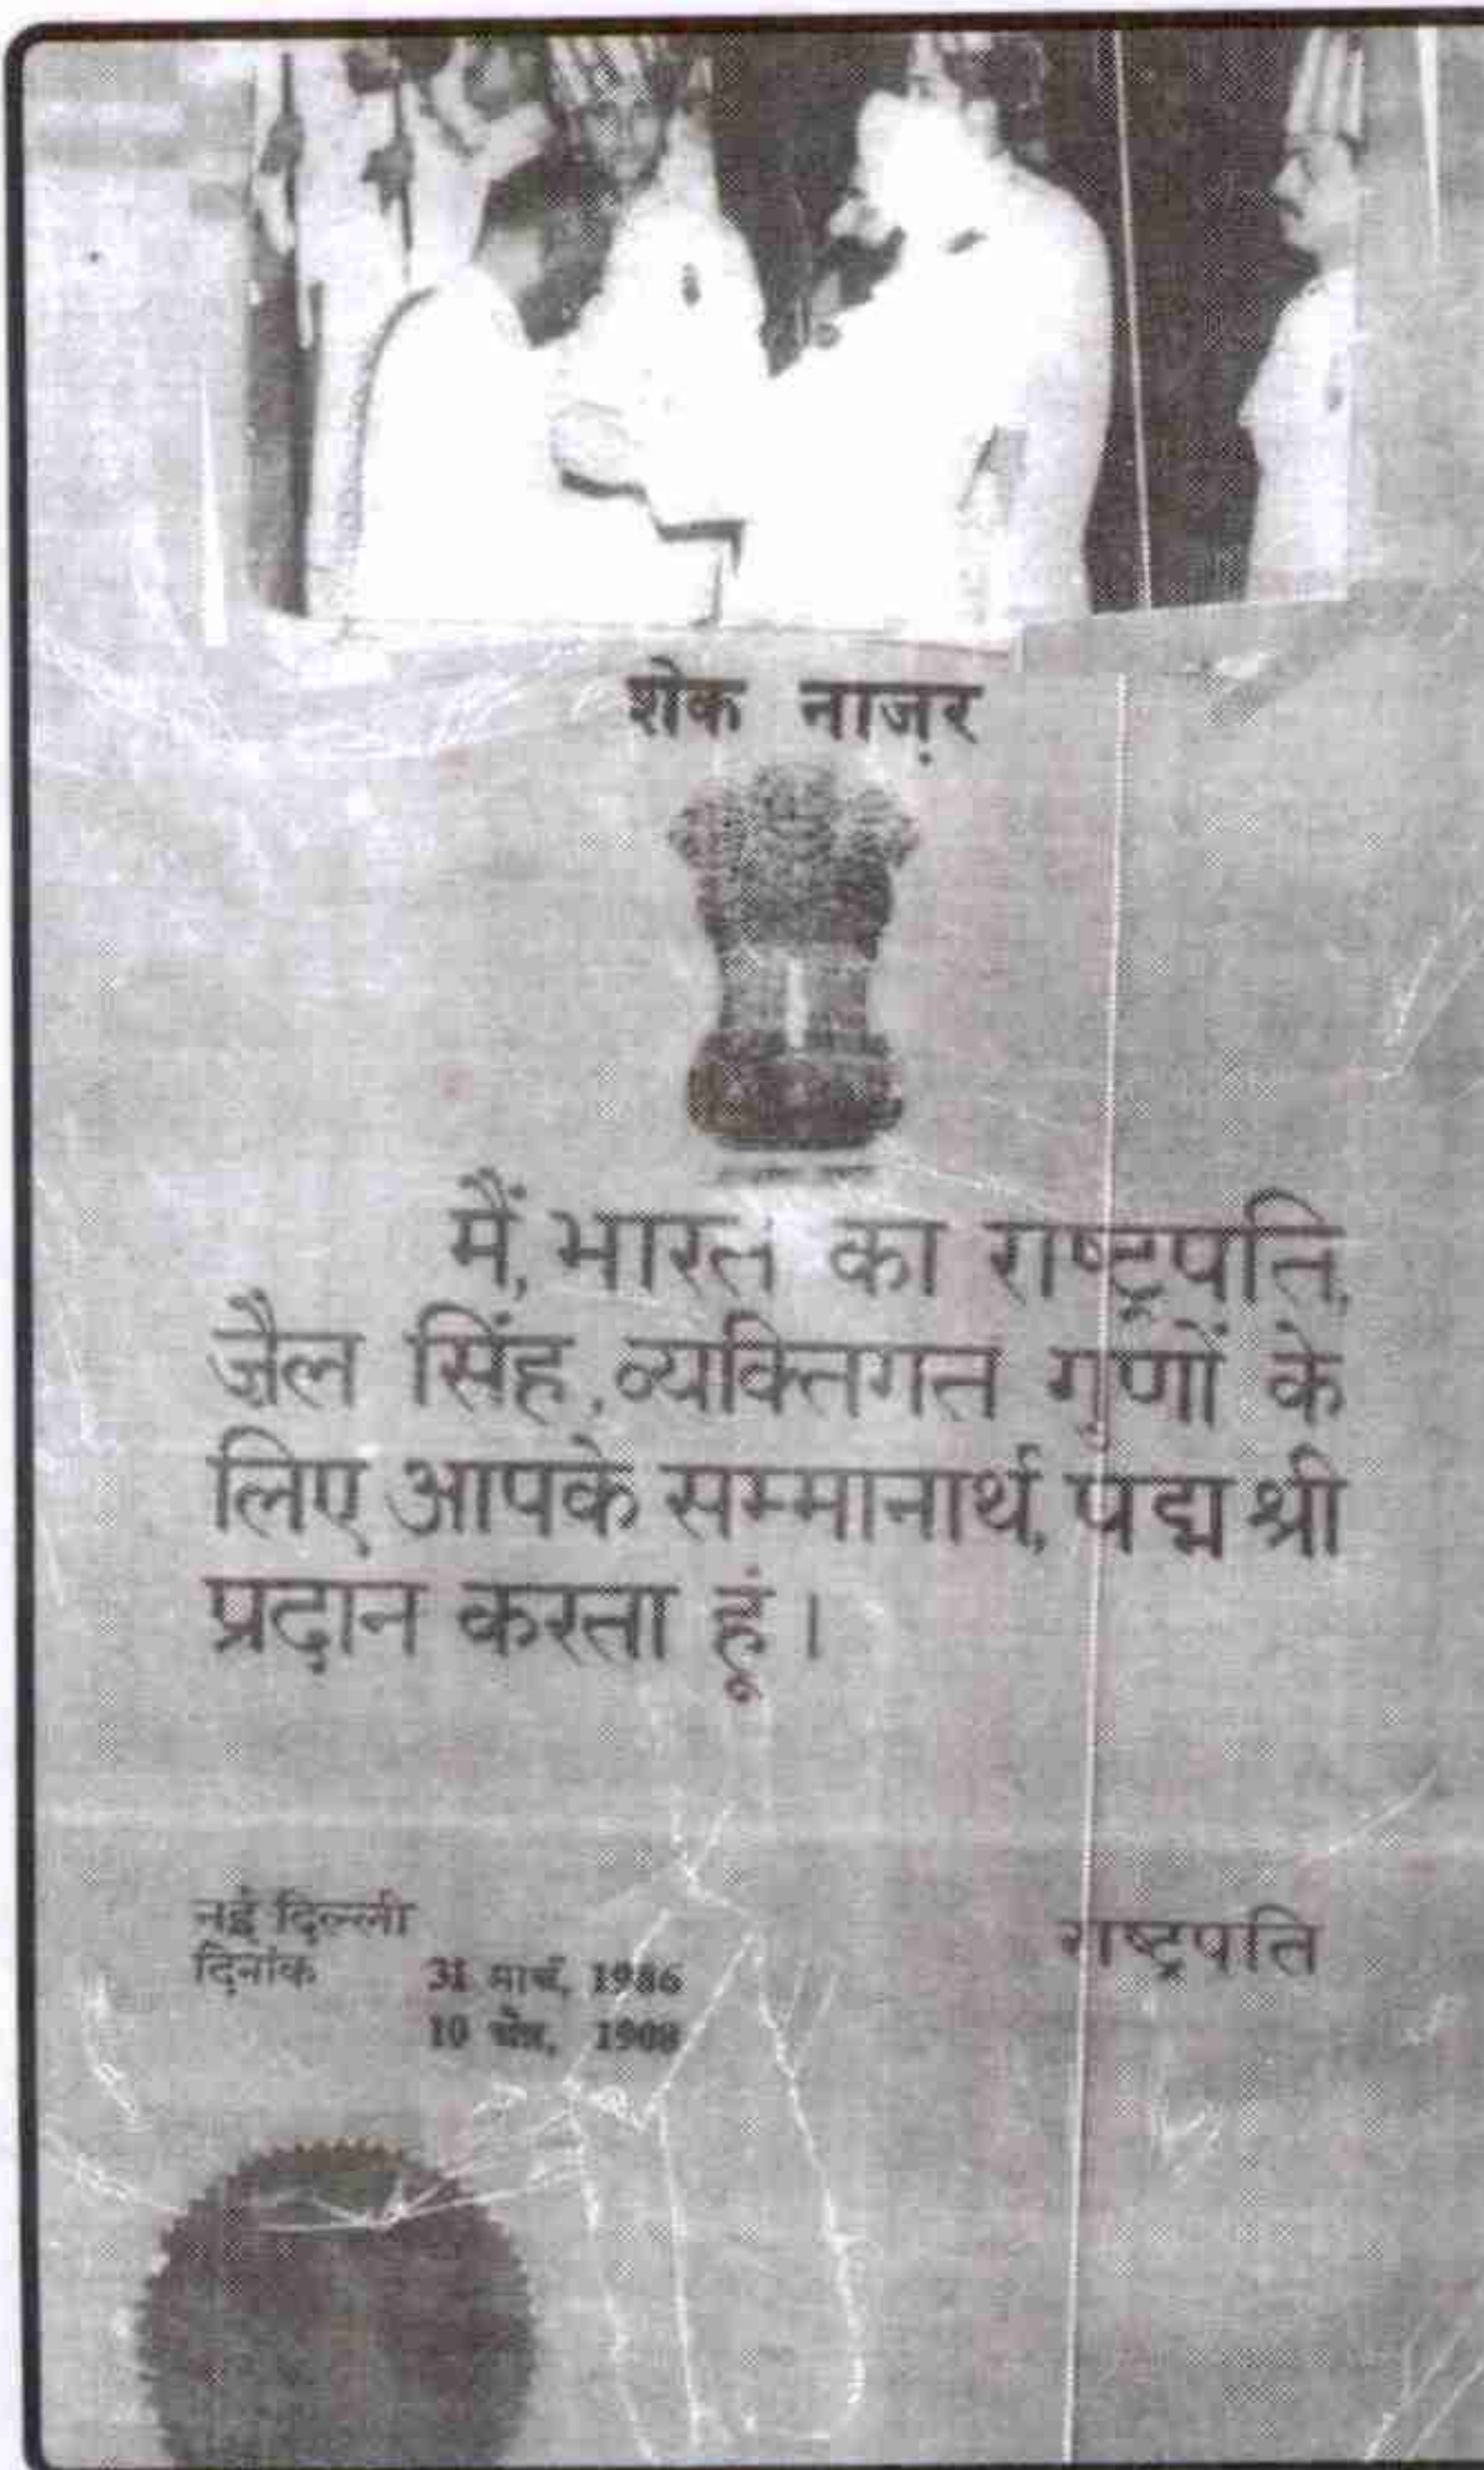 शेक नाज़र
मैं, भारत का राष्ट्रपति,
ज़ैल सिंह, व्यक्तिगत गुणों के
लिए आपके सम्मानार्थ, पद्म श्री
प्रदान करता हूं।
नई दिल्ली
राष्ट्रपति
दिनांक 31 मार्च, 1986
10 चैत्र, 1908